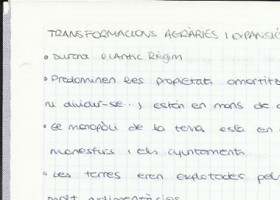 TRANSFORMACIONS AGRÀRIES I EXPANSIÓ
• Durant l'Antic Règim
• Predominen les propietats amortitz
ni dividir-se..., estan en mans de
• El monopoli de la terra està en
monestirs i els ajuntaments
• Les terres eren explotades pel
molt rudimentàries